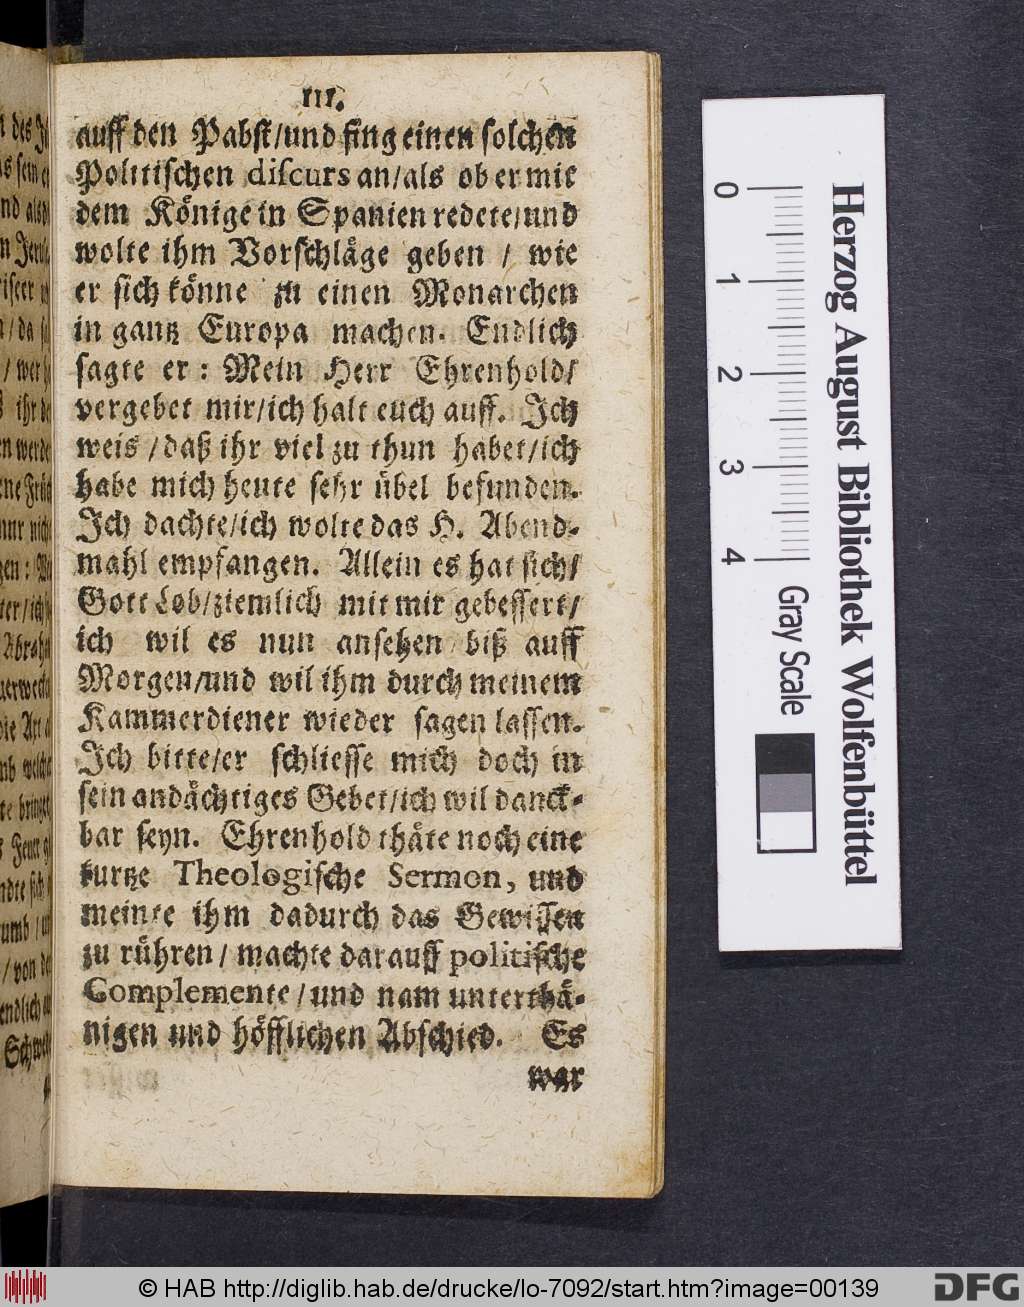 111.
auff den Pabst/und fing einen solchen
Politischen discurs an/als ob er mit
dem Könige in Spanien redete/und
wolte ihm Vorschläge geben / wie
er sich könne zu einen Monarchen
in gantz Europa machen. Endlich
sagte er: Mein Herr Ehrenhold/
vergebet mir/ich halt euch auff. Ich
weis /daß ihr viel zu thun habet/ich
habe mich heute sehr übel befunden.
Ich dachte/ich wolte das H. Abend-
mahl empfangen. Allein es hat sich/
Gott Lob/ziemlich mit mir gebessert/
ich wil es nun ansehen biß auff
Morgen/und wil ihm durch meinem
Kammerdiener wieder sagen lassen.
Ich bitte/er schliesse mich doch in
sein andächtiges Gebet/ich wil danck-
bar seyn. Ehrenhold thäte noch eine
kurtze Theologische Sermon, und
meinte ihm dadurch das Gewissen
zu rühren / machte darauff politische
Complemente / und nam unterthä-
nigen und höfflichen Abschied. Es
war
Herzog August Bibliothek Wolfenbüttel
0 1 2 3 4
Gray Scale
© HAB http://diglib.hab.de/drucke/lo-7092/start.htm?image=00139
DFG